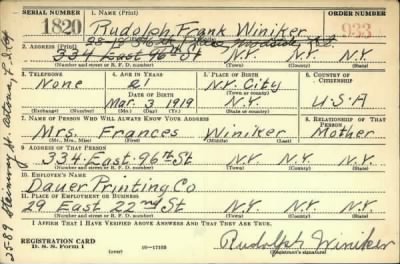 SERIAL NUMBER 1. NAME (Print) ORDER NUMBER
1820 Rudolph Frank Winiker 933
2. ADDRESS (Print)
334 East 96th St N.Y. N.Y.
(Number and street or R. F. D. number) (Town) (County) (State)
3. TELEPHONE 4. AGE IN YEARS 5. PLACE OF BIRTH 6. COUNTRY OF CITIZENSHIP
None 21 N.Y. City
DATE OF BIRTH (Town or county)
Mar. 3 1919 N.Y. U.S.A
(Exchange) (Number) (Mo.) (Day) (Yr.) (State or country)
7. NAME OF PERSON WHO WILL ALWAYS KNOW YOUR ADDRESS 8. RELATIONSHIP OF THAT PERSON
Mrs. Frances Winiker Mother
(Mr., Mrs., Miss) (First) (Middle) (Last)
9. ADDRESS OF THAT PERSON
334 East 96th St N.Y. N.Y. N.Y.
(Number and street or R. F. D. number) (Town) (County) (State)
10. EMPLOYER'S NAME
Dauer Printing Co
11. PLACE OF EMPLOYMENT OR BUSINESS
29 East 22nd St N.Y. N.Y. N.Y.
(Number and street or R. F. D. number) (Town) (County) (State)
I AFFIRM THAT I HAVE VERIFIED ABOVE ANSWERS AND THAT THEY ARE TRUE.
REGISTRATION CARD
D. S. S. Form 1 (over) 16—17105 Rudolph Winiker
(Registrant's signature)
25-89 Steinway St. Astoria, L.I.